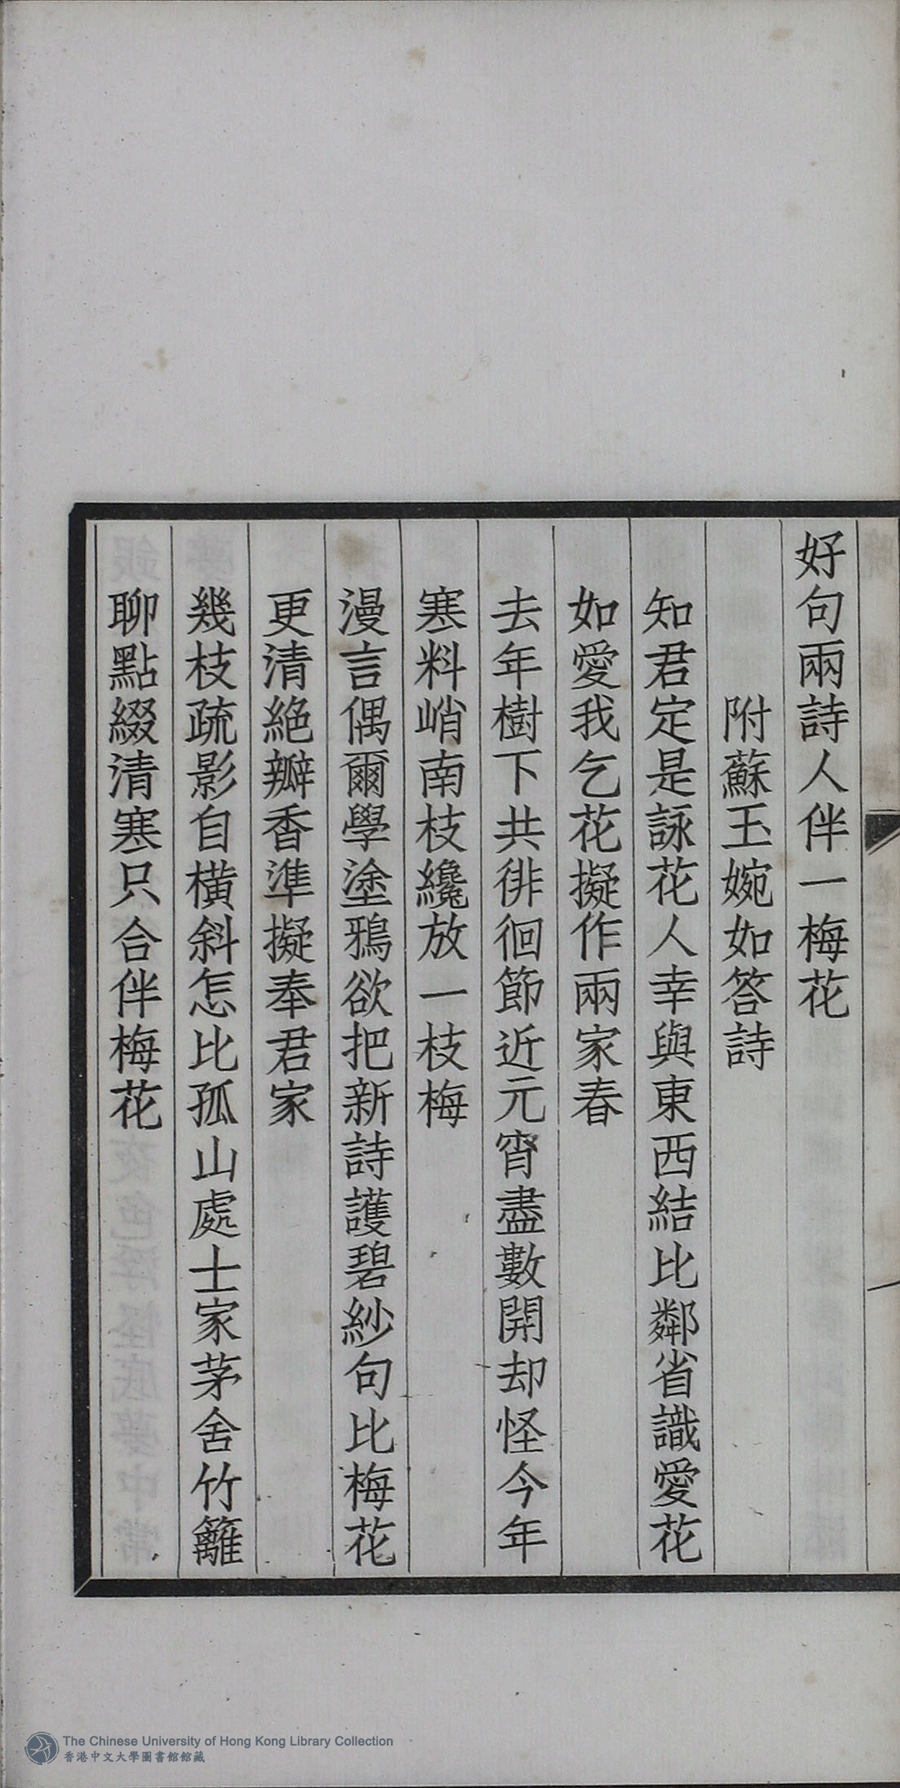 好句兩詩人伴一梅花
附蘇玉婉如答詩
知君定是詠花人幸與東西結比鄰省識愛花
如愛我乞花擬作兩家春
去年樹下共徘徊節近元宵盡數開却怪今年
寒料峭南枝纔放一枝梅
漫言偶爾學塗鴉欲把新詩護碧紗句比梅花
更清絕瓣香準擬奉君家
幾枝疏影自橫斜怎比孤山處士家茅舍竹籬
聊點綴清寒只合伴梅花
The Chinese University of Hong Kong Library Collection
香港中文大學圖書館館藏